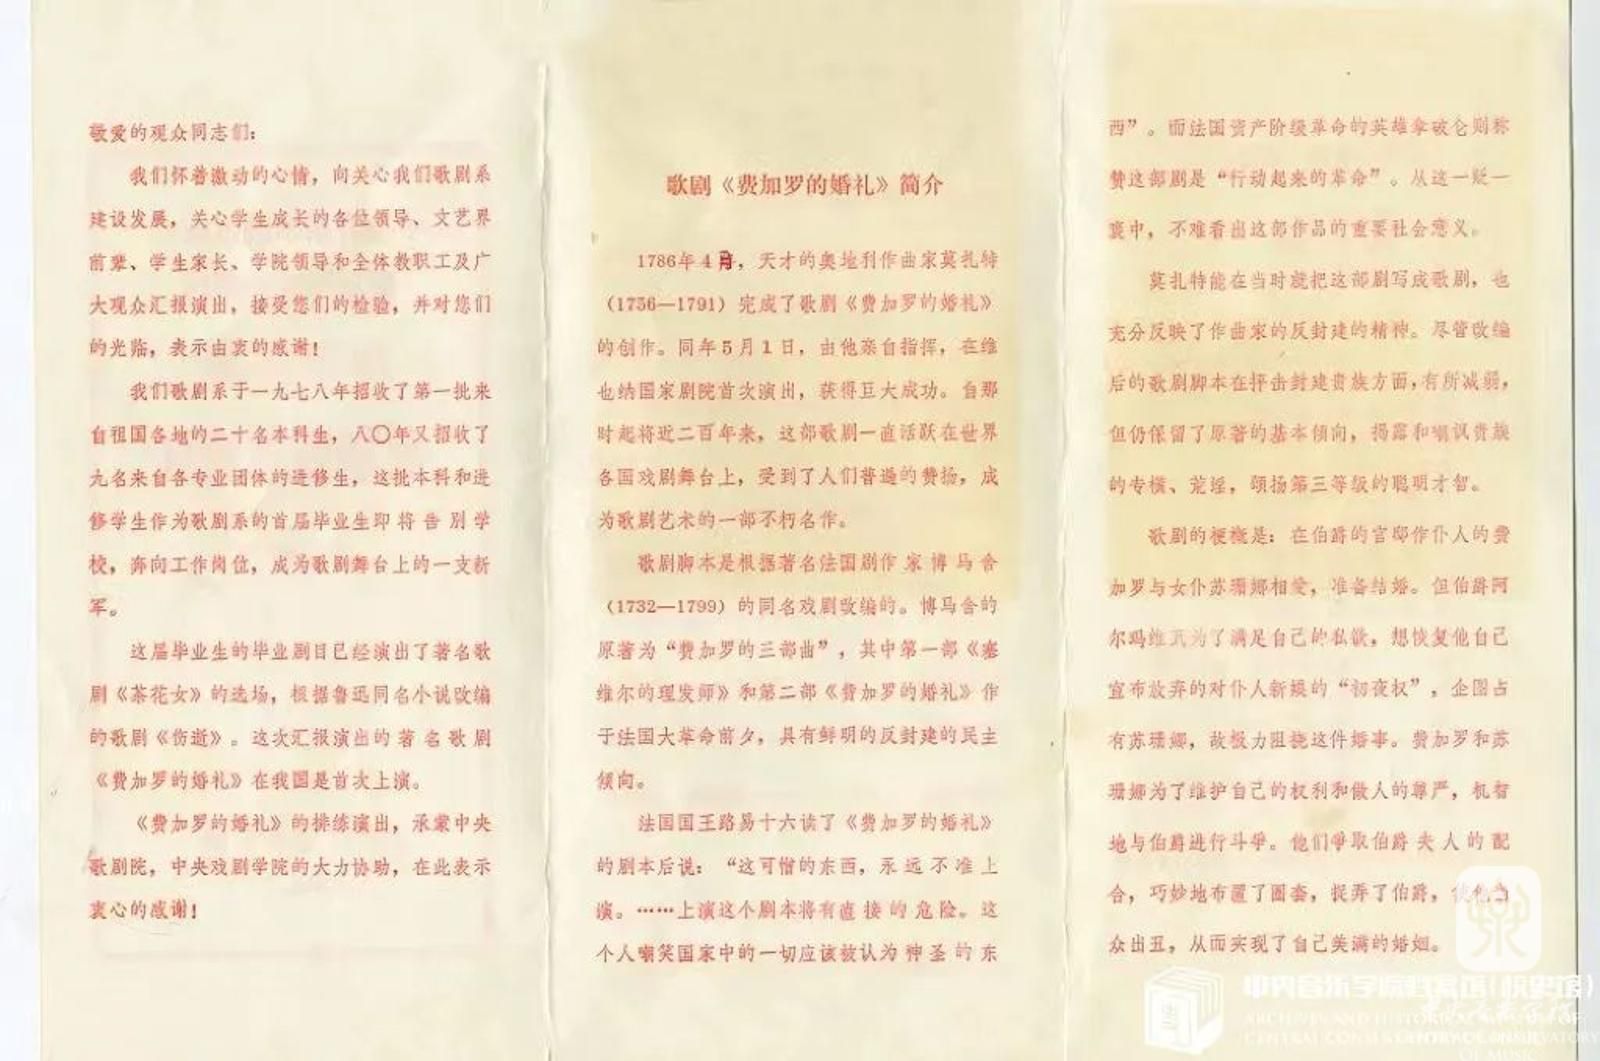 敬爱的观众同志们：
我们怀着激动的心情，向关心我们歌剧系
建设发展，关心学生成长的各位领导、文艺界
前辈、学生家长、学院领导和全体教职工及广
大观众汇报演出，接受您们的检验，并对您们
的光临，表示由衷的感谢！
我们歌剧系于一九七八年招收了第一批来
自祖国各地的二十名本科生，八〇年又招收了
九名来自各专业团体的进修生，这批本科和进
修学生作为歌剧系的首届毕业生即将告别学
校，奔向工作岗位，成为歌剧舞台上的一支新
军。
这届毕业生的毕业剧目已经演出了著名歌
剧《茶花女》的选场，根据鲁迅同名小说改编
的歌剧《伤逝》。这次汇报演出的著名歌剧
《费加罗的婚礼》在我国是首次上演。
《费加罗的婚礼》的排练演出，承蒙中央
歌剧院，中央戏剧学院的大力协助，在此表示
衷心的感谢！
歌剧《费加罗的婚礼》简介
1786年4月，天才的奥地利作曲家莫扎特
（1756—1791）完成了歌剧《费加罗的婚礼》
的创作。同年5月1日，由他亲自指挥，在维
也纳国家剧院首次演出，获得巨大成功。自那
时起将近二百年来，这部歌剧一直活跃在世界
各国戏剧舞台上，受到了人们普遍的赞扬，成
为歌剧艺术的一部不朽名作。
歌剧脚本是根据著名法国剧作家博马舍
（1732—1799）的同名戏剧改编的。博马舍的
原著为“费加罗的三部曲”，其中第一部《塞
维尔的理发师》和第二部《费加罗的婚礼》作
于法国大革命前夕，具有鲜明的反封建的民主
倾向。
法国国王路易十六读了《费加罗的婚礼》
的剧本后说：“这可憎的东西，永远不准上
演。……上演这个剧本将有直接的危险。这
个人嘲笑国家中的一切应该被认为神圣的东
西”。而法国资产阶级革命的英雄拿破仑则称
赞这部剧是“行动起来的革命”。从这一贬一
褒中，不难看出这部作品的重要社会意义。
莫扎特能在当时就把这部剧写成歌剧，也
充分反映了作曲家的反封建的精神。尽管改编
后的歌剧脚本在抨击封建贵族方面，有所减弱，
但仍保留了原著的基本倾向，揭露和嘲讽贵族
的专横、荒淫，颂扬第三等级的聪明才智。
歌剧的梗概是：在伯爵的官邸作仆人的费
加罗与女仆苏珊娜相爱，准备结婚。但伯爵阿
尔玛维瓦为了满足自己的私欲，想恢复他自己
宣布放弃的对仆人新娘的“初夜权”，企图占
有苏珊娜，故极力阻挠这件婚事。费加罗和苏
珊娜为了维护自己的权利和做人的尊严，机智
地与伯爵进行斗争。他们争取伯爵夫人的配
合，巧妙地布置了圈套，捉弄了伯爵，使他当
众出丑，从而实现了自己美满的婚姻。
中央音乐学院档案馆(校史馆)
ARCHIVES AND HISTORICAL MUSEUM OF
CENTRAL CONSERVATORY OF MUSIC